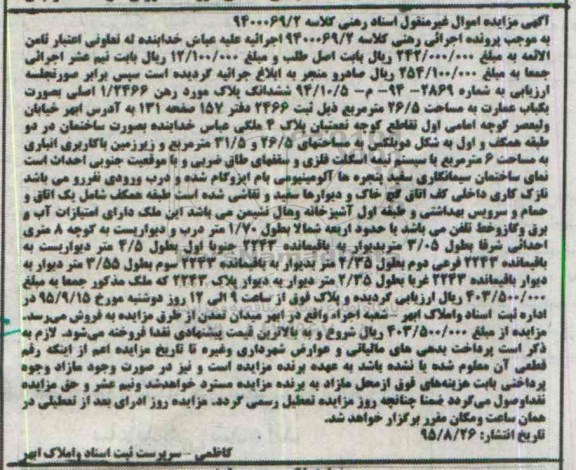 آگهی مزایده اموال غیرمنقول اسناد رهنی کلاسه ۹۴۰۰۰۶۹/۲
به موجب پرونده اجرائی رهنی کلاسه ۹۴۰۰۰۶۹/۲ اجرائیه علیه عباس خدابنده له تعاونی اعتبار ثامن
الائمه به مبلغ ۲۴۲/۰۰۰/۰۰۰ ریال بابت اصل طلب و مبلغ ۱۲/۱۰۰/۰۰۰ ریال بابت نیم عشر اجرائی
جمعا به مبلغ ۲۵۴/۱۰۰/۰۰۰ ریال صادرو منجر به ابلاغ جرائیه گردیده است سپس برابر صورتجلسه
ارزیابی به شماره ۲۸۶۹- ۹۴- م- ۹۴/۱۰/۵ ششدانگ پلاک مورد رهن ۱/۲۴۶۶ اصلی بصورت
یکباب عمارت به مساحت ۲۶/۵ مترمربع ذیل ثبت ۲۴۶۶ دفتر ۱۵۷ صفحه ۱۳۱ به آدرس ابهر خیابان
ولیعصر کوچه امامی اول تقاطع کوچه نعمتیان پلاک ۴ ملکی عباس خدابنده بصورت ساختمان در دو
طبقه همکف و اول به شکل دوبلکس به مساحتهای ۲۶/۵ و ۳۱/۵ مترمربع و زیرزمین باکاربری انباری
به مساحت ۶ مترمربع با سیستم نیمه اسکلت فلزی و سقفهای طاق ضربی و با موقعیت جنوبی احداث است
نمای ساختمان سیمانکاری سفید پنجره ها آلومینیومی بام ایزوگام شده و درب ورودی نفررو می باشد
نازک کاری داخلی کف اتاق گچ خاک و دیوارها سفید و نقاشی شده است طبقه همکف شامل یک اتاق و
حمام و سرویس بهداشتی و طبقه اول آشپزخانه وهال نشیمن می باشد این ملک دارای امتیازات آب و
برق وگازوخط تلفن می باشد با حدود اربعه شمالا بطول ۱/۷۰ متر درب و دیواریست به کوچه ۸ متری
احداثی شرقا بطول ۳/۰۵ متربدیوار به باقیمانده ۲۲۴۳ جنوبا اول بطول ۴/۵ متر دیواریست به
باقیمانده ۲۲۴۳ فرعی دوم بطول ۲/۳۵ متر بدیوار به باقیمانده ۲۲۴۳ سوم بطول ۳/۵۵ متر دیوار به
دیوار باقیمانده ۲۲۴۳ غربا بطول ۲/۳۵ متر دیوار به دیوار پلاک ۲۲۴۳ که ملک مذکور جمعا به مبلغ
۴۰۳/۵۰۰/۰۰۰ ریال ارزیابی گردیده و پلاک فوق از ساعت ۹ الی ۱۲ روز دوشنبه مورخ ۹۵/۹/۱۵ در
اداره ثبت اسناد واملاک ابهر شعبه اجراء واقع در ابهر میدان تمدن از طرق مزایده به فروش می‌رسد.
مزایده از مبلغ ۴۰۳/۵۰۰/۰۰۰ ریال شروع و به بالاترین قیمت پیشنهادی نقدا فروخته می‌شود. لازم به
ذکر است پرداخت بدهی های مالیاتی و عوارض شهرداری وغیره تا تاریخ مزایده اعم از اینکه رقم
قطعی آن معلوم شده یا نشده باشد به عهده برنده مزایده است و نیز در صورت وجود مازاد وجوه
پرداختی بابت هزینه‌های فوق ازمحل مازاد به برنده مزایده مسترد خواهدشد ونیم عشر و حق مزایده
نقداوصول می‌گردد ضمنا چنانچه روز مزایده تعطیل رسمی گردد. مزایده روز اداری بعد از تعطیلی در
همان ساعت ومکان مقرر برگزار خواهد شد.
تاریخ انتشار: ۹۵/۸/۲۶
کاظمی - سرپرست ثبت اسناد واملاک ابهر